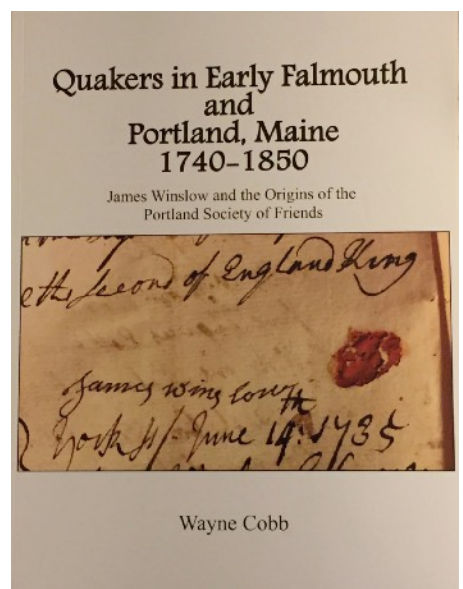 Quakers in Early Falmouth
and
Portland, Maine
1740–1850
James Winslow and the Origins of the
Portland Society of Friends
e the second of England King
James winslow
York ss/ June 14th: 1735
Wayne Cobb